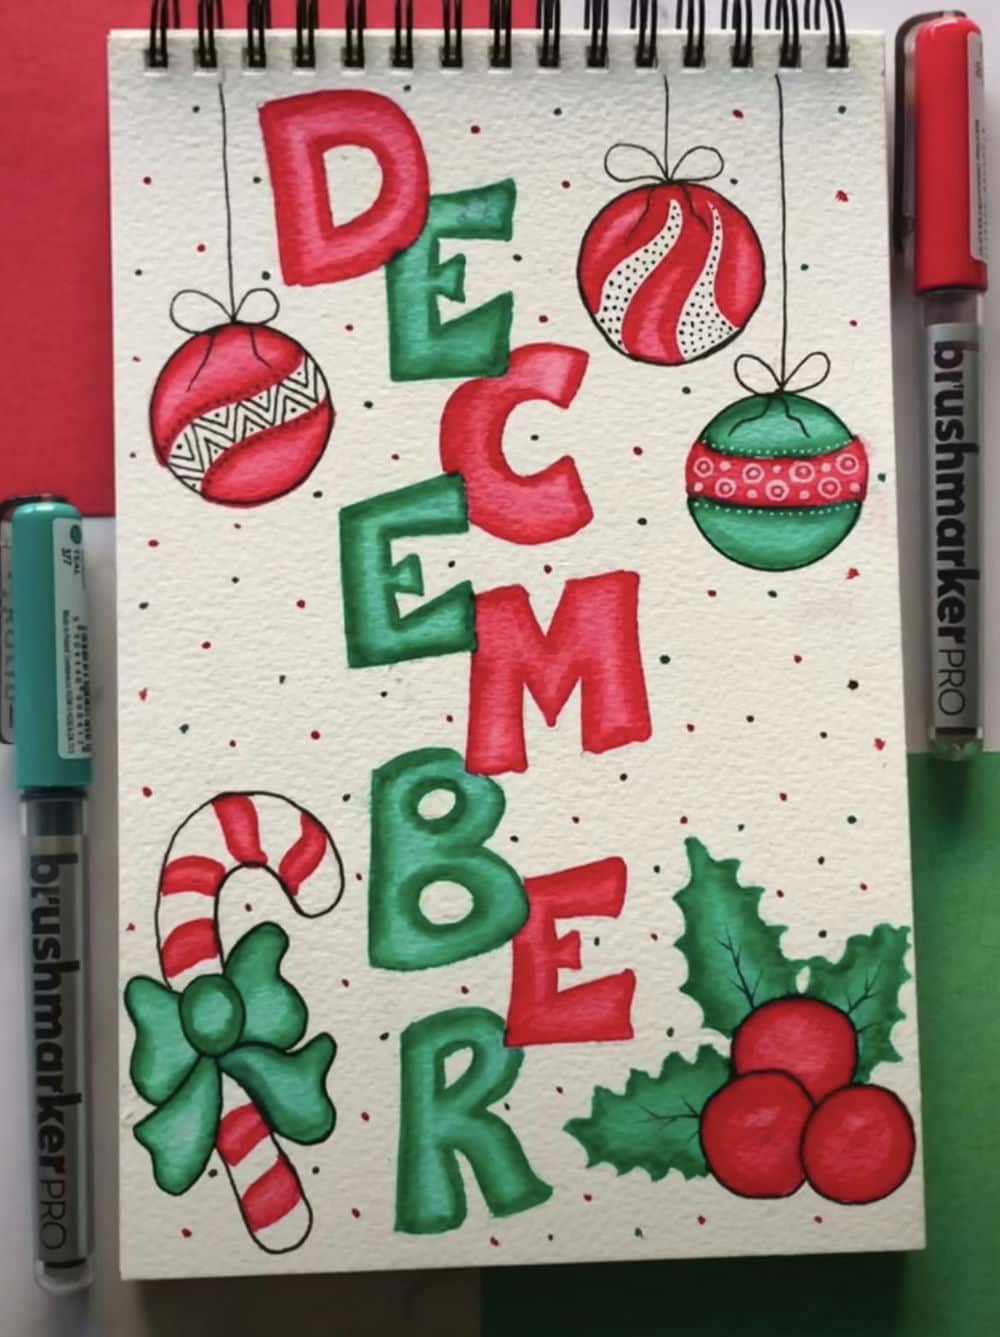 DECEMBER
brushmarkerPRO
TEAL
377
brushmarkerPRO